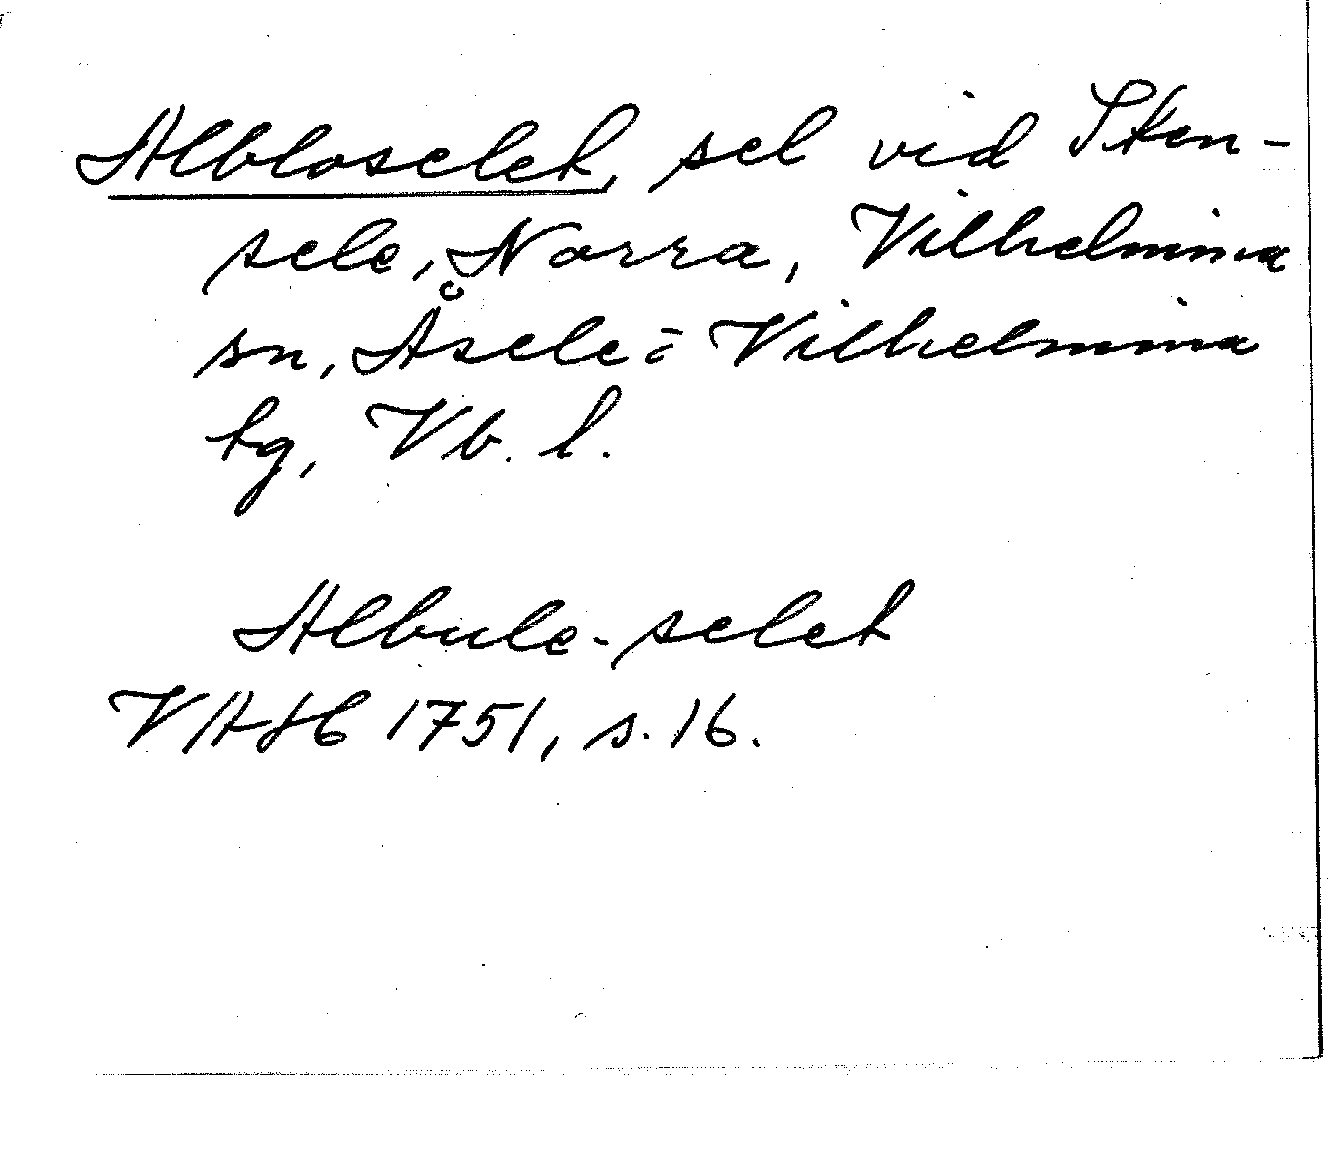 Albloselet, sel vid Sten-
sele, Norra, Vilhelmina
sn, Åsele- Vilhelmina
tg, Vb. l.
Albule-selet
VASb 1751, s. 16.